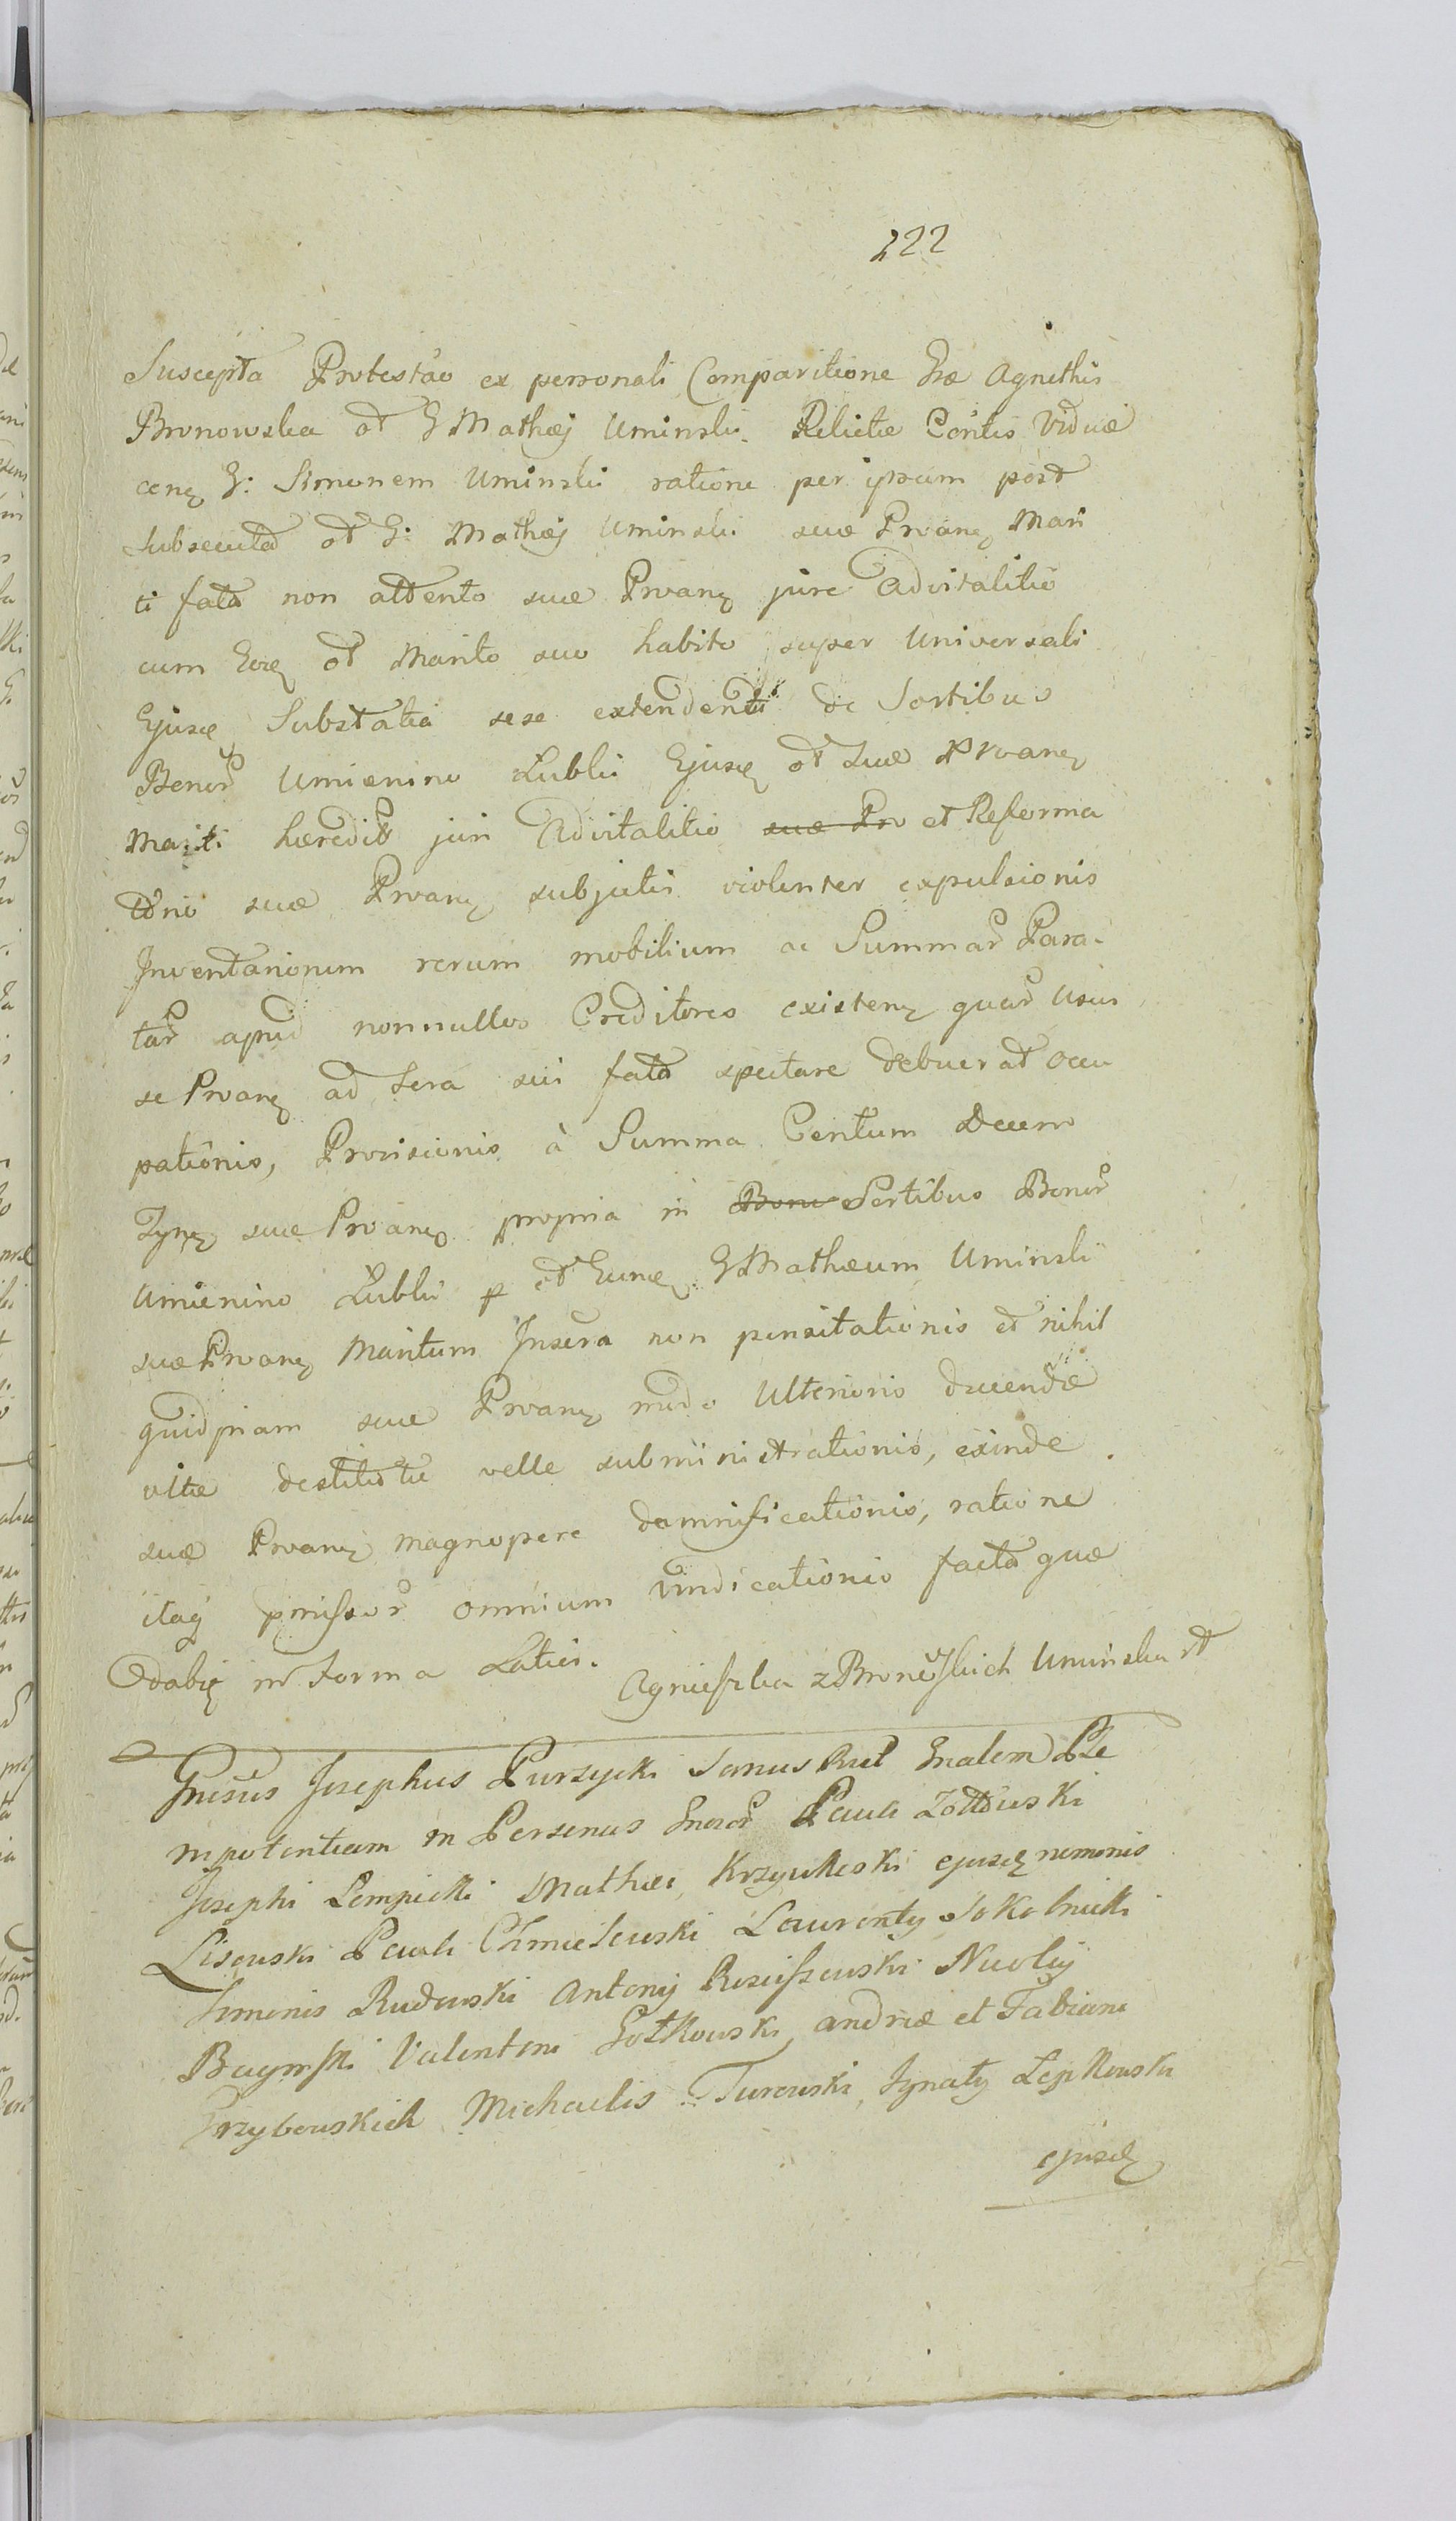 222
Suscepta Protestao ex personali Comparitione Gsæ Agnethis
Bronowska olt G Mathæj Uminski Relictæ Contis Viduæ
G: Simonem Uminski ratione per ipsum post
subsecuta olt G: Mathæj Uminski suæ Prvanę Mari
ti fata non attento suæ Prvanę jure Advitalitio
cum olt Marito suo habito super Universali
Ejusę Substatia sese extendenti de Sortibus
Benor̃ Umienino Lubki Ejusę olt Suæ Prvanę
Mariti hæredit juri Advitalitio suæ Prv et Reforma
tõnio suæ Prvanę subjectis violenter expulsionis
Inventariorum rerum mobilium ac Summar̃ Para-
tar̃ apud nonnullos Creditores existenę quar̃ Usus
se Prvanę ad sera sui fata spectare debuerat Occu
pationis, Provisionis à Summa Centum Decem
Tynę suæ Prvanę propria in Bono Sortibus Benor̃
Umienino Lubki p olt Eunę G Mathæum Uminski
suæ Prvanę Maritum Inscra non pensitationis et nihil
quidpiam suæ Prvanę modo Ulterioris ducendæ
vitæ destitutæ velle subministrationis, exinde
suæ Prvanę magnopere damnificationis, ratione
itaq pmissor̃ omnium vindicationis facta quæ
dabię in forma Latiori.
Agnieszka z Bronowskich Uminska
Gnosus Josephus Pursycki Sanus Rut Gnalem Ple
nipotentiam in Personas Gnosor̃ Pauli Zółtowski
Josephi Lempicki Mathæi Krzyukoski ejusdę nominis
Lisouski Pauli Chmielouski Laurenty Sokolnicki
Simonis Rudouski Antonij Rosciszouski Nicolij
Bagiński Valentini Gołkouski, andreæ et Fabiani
Grzybouskich Michaelis Turouski, Ignaty Lepkouski
ejusdę